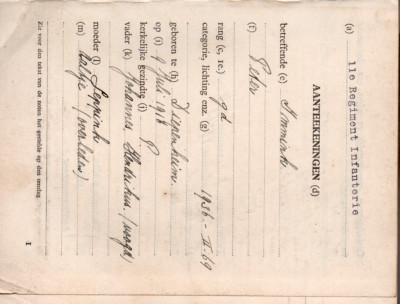 (a) 11e Regiment Infanterie
AANTEEKENINGEN (d)
betreffende (e) Immink
(f) Peter
rang (e, 1e.) gd
categorie, lichting enz. (g) 1936 - II. 69
geboren te (h) Diepenheim.
op (i) 9 Juli 1916
kerkelijke gezindte (j) P
vader (k) Johannes Hendrikus /
moeder (l) Leppink
(m) Aaltje / overleden)
Zie voor den tekst van de noten het gestelde op den omslag.
1